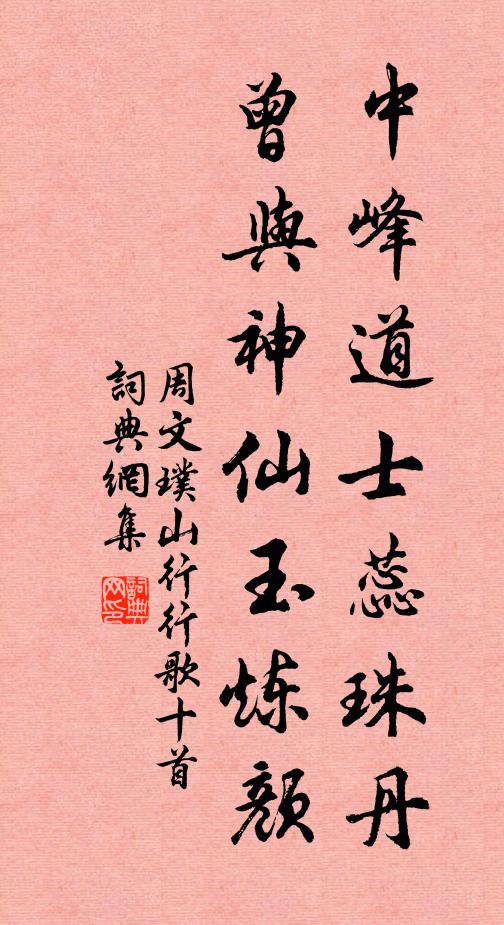 中峰道士蕊珠丹
曾與神仙玉炼顏
周文璞山行行歌十首
詞典網集
詞典网印